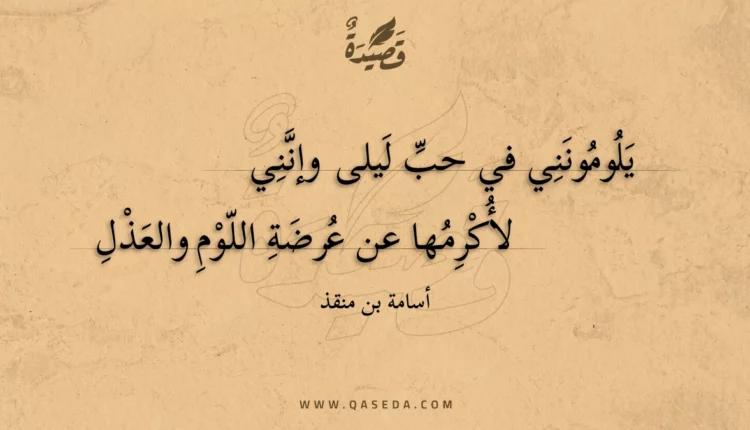 قَصِيْدَةٌ
يَلُومُونَنِي في حبِّ لَيلى وإنَّنِي
لأُكْرِمُها عن عُرضَةِ اللّوْمِ والعَذْلِ
أسامة بن منقذ
WWW.QASEDA.COM